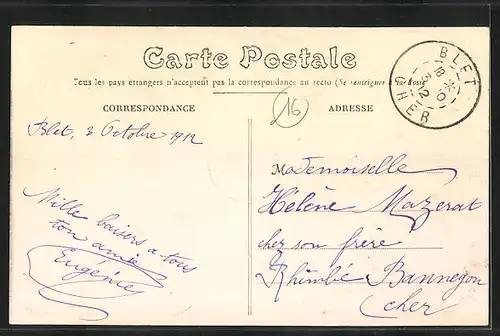 Carte Postale
Tous les pays étrangers n'acceptent pas la correspondance au recto (Se renseigner à la Poste)
CORRESPONDANCE
ADRESSE
16
BLET
CHER
Blet, 3 Octobre 1912
Mille baisers a tous
ton amie
Eugénie
MaDemoiselle
Hélène Mazerat
chez son frère
Bannegon
cher